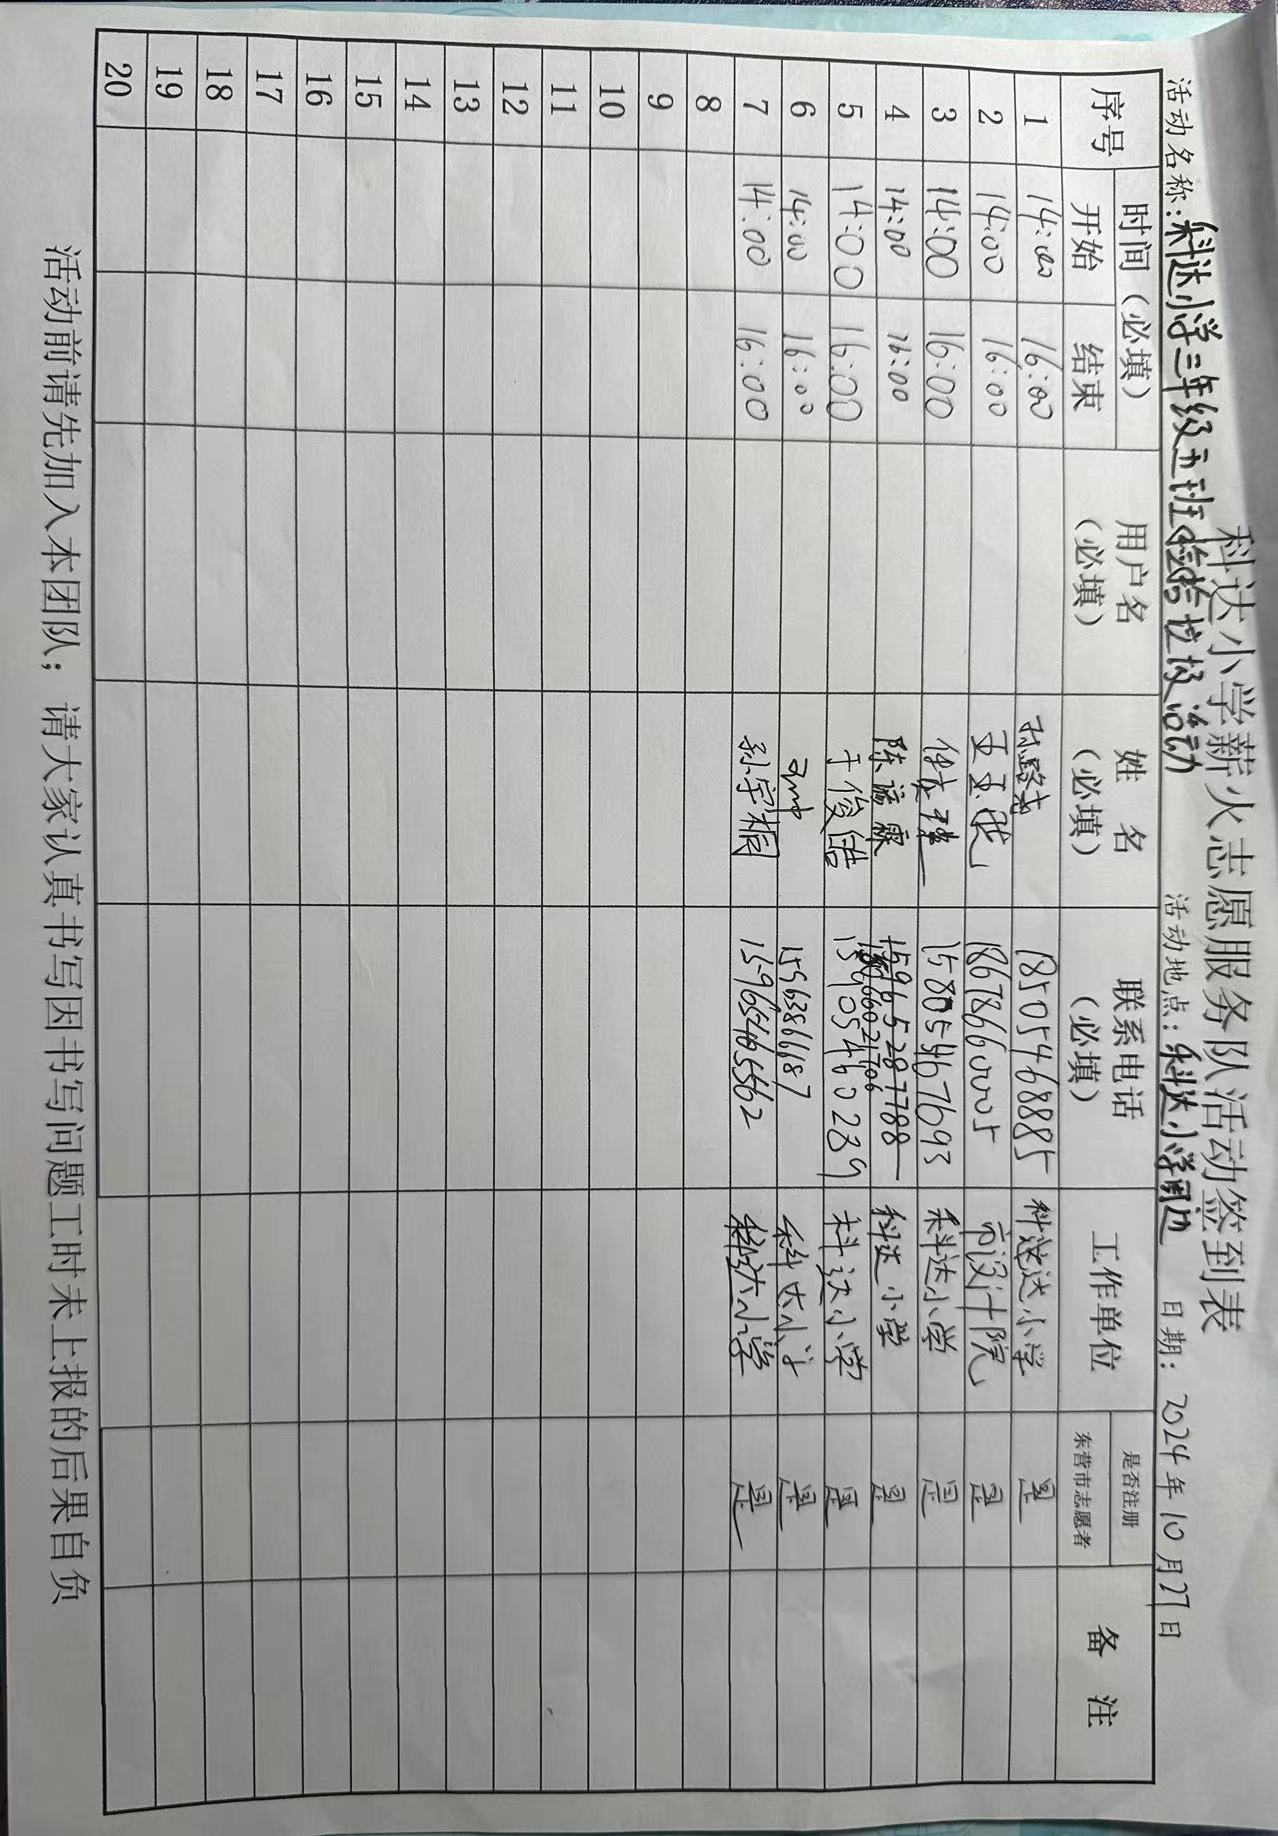 科达小学薪火志愿服务队活动签到表
活动名称：科达小学三年级五班捡垃圾活动 活动地点：科达小学周边 日期：2024年10月27日
序号 时间（必填） 用户名（必填） 姓名（必填） 联系电话（必填） 工作单位 是否注册东营市志愿者 备注
开始 结束
1 14:00 16:00 18505468885 科达小学 是
2 14:00 16:00 18678660005 市设计院 是
3 14:00 16:00 15805467693 科达小学 是
4 14:00 16:00 陈谥霖 科达小学 是
5 14:00 16:00 于俊皓 15905460239 科达小学 是
6 14:00 16:00 15963866687 科大小学 是
7 14:00 16:00 孙宇桐 科达小学 是
8
9
10
11
12
13
14
15
16
17
18
19
20
活动前请先加入本团队； 请大家认真书写因书写问题工时未上报的后果自负